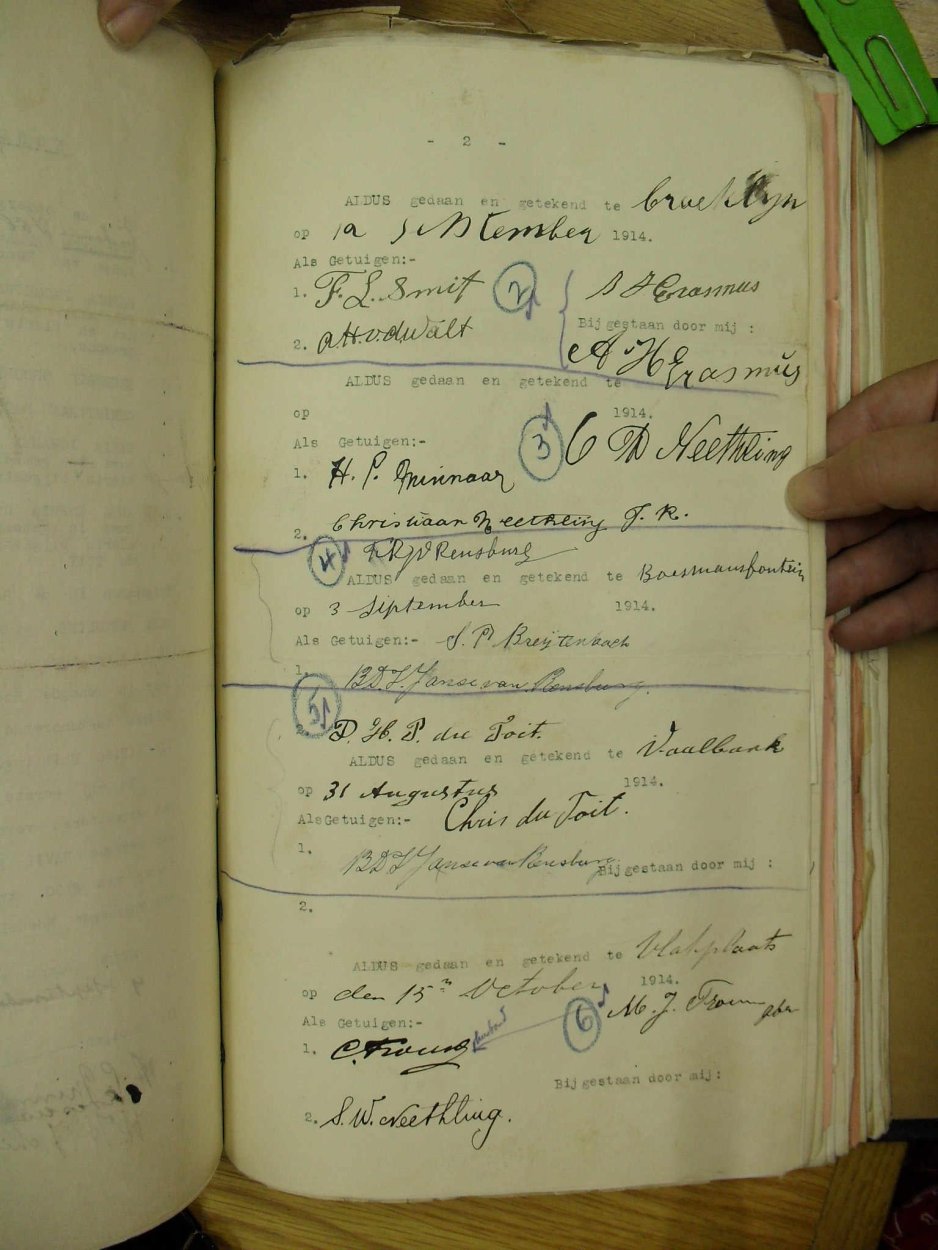 - 2 -
ALDUS gedaan en getekend te
op 1914.
Als Getuigen:-
1. F. L. Smit 2 Erasmus
Bijgestaan door mij :
2. A.H. v.d. Walt A H Erasmus
ALDUS gedaan en getekend te
op 1914.
Als Getuigen:- 3 C Neethling
1. H. P. Minnaar
2. Christiaan Neethling
4 Rensburg
ALDUS gedaan en getekend te Boesmansfontein
op 3 September 1914.
Als Getuigen:- S. P. Breijtenbach
1. B D J Janse van Rensburg.
5
2. D. H. P. du Toit.
ALDUS gedaan en getekend te Vaalbank
op 31 Augustus 1914.
Als Getuigen:- Chris du Toit.
1. B D J Janse van Rensburg Bijgestaan door mij :
2.
ALDUS gedaan en getekend te Vlakplaats
op den 15n October 1914.
Als Getuigen:- 6 M. J.
1. C.
Bijgestaan door mij:
2. S. W. Neethling.